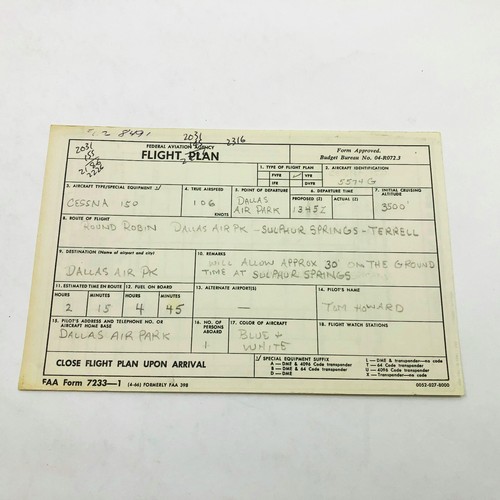 2 8491
2031
2316
2031
155
FEDERAL AVIATION AGENCY
FLIGHT PLAN
Form Approved.
Budget Bureau No. 04-R072.3
1. TYPE OF FLIGHT PLAN
FVFR ✓ VFR
IFR DVFR
2. AIRCRAFT IDENTIFICATION
5574G
3. AIRCRAFT TYPE/SPECIAL EQUIPMENT
CESSNA 150
4. TRUE AIRSPEED
106
KNOTS
5. POINT OF DEPARTURE
DALLAS
AIR PARK
6. DEPARTURE TIME
PROPOSED (Z) ACTUAL (Z)
1345Z
7. INITIAL CRUISING
ALTITUDE
3500'
8. ROUTE OF FLIGHT
ROUND ROBIN DALLAS AIR PK - SULPHUR SPRINGS - TERRELL
9. DESTINATION (Name of airport and city)
DALLAS AIR PK
10. REMARKS
WILL ALLOW APPROX 30 ON THE GROUND
TIME AT SULPHUR SPRINGS
11. ESTIMATED TIME EN ROUTE
HOURS MINUTES
2 15
12. FUEL ON BOARD
HOURS MINUTES
4 45
13. ALTERNATE AIRPORT(S)
—
14. PILOT'S NAME
TOM HOWARD
15. PILOT'S ADDRESS AND TELEPHONE NO. OR
AIRCRAFT HOME BASE
DALLAS AIR PARK
16. NO. OF
PERSONS
ABOARD
1
17. COLOR OF AIRCRAFT
BLUE +
WHITE
18. FLIGHT WATCH STATIONS
CLOSE FLIGHT PLAN UPON ARRIVAL
SPECIAL EQUIPMENT SUFFIX
A — DME & 4096 Code transponder
B — DME & 64 Code transponder
D — DME
L — DME & transponder—no code
T — 64 Code transponder
U — 4096 Code transponder
X — Transponder—no code
FAA Form 7233—1 (4-66) FORMERLY FAA 398
0052-027-8000